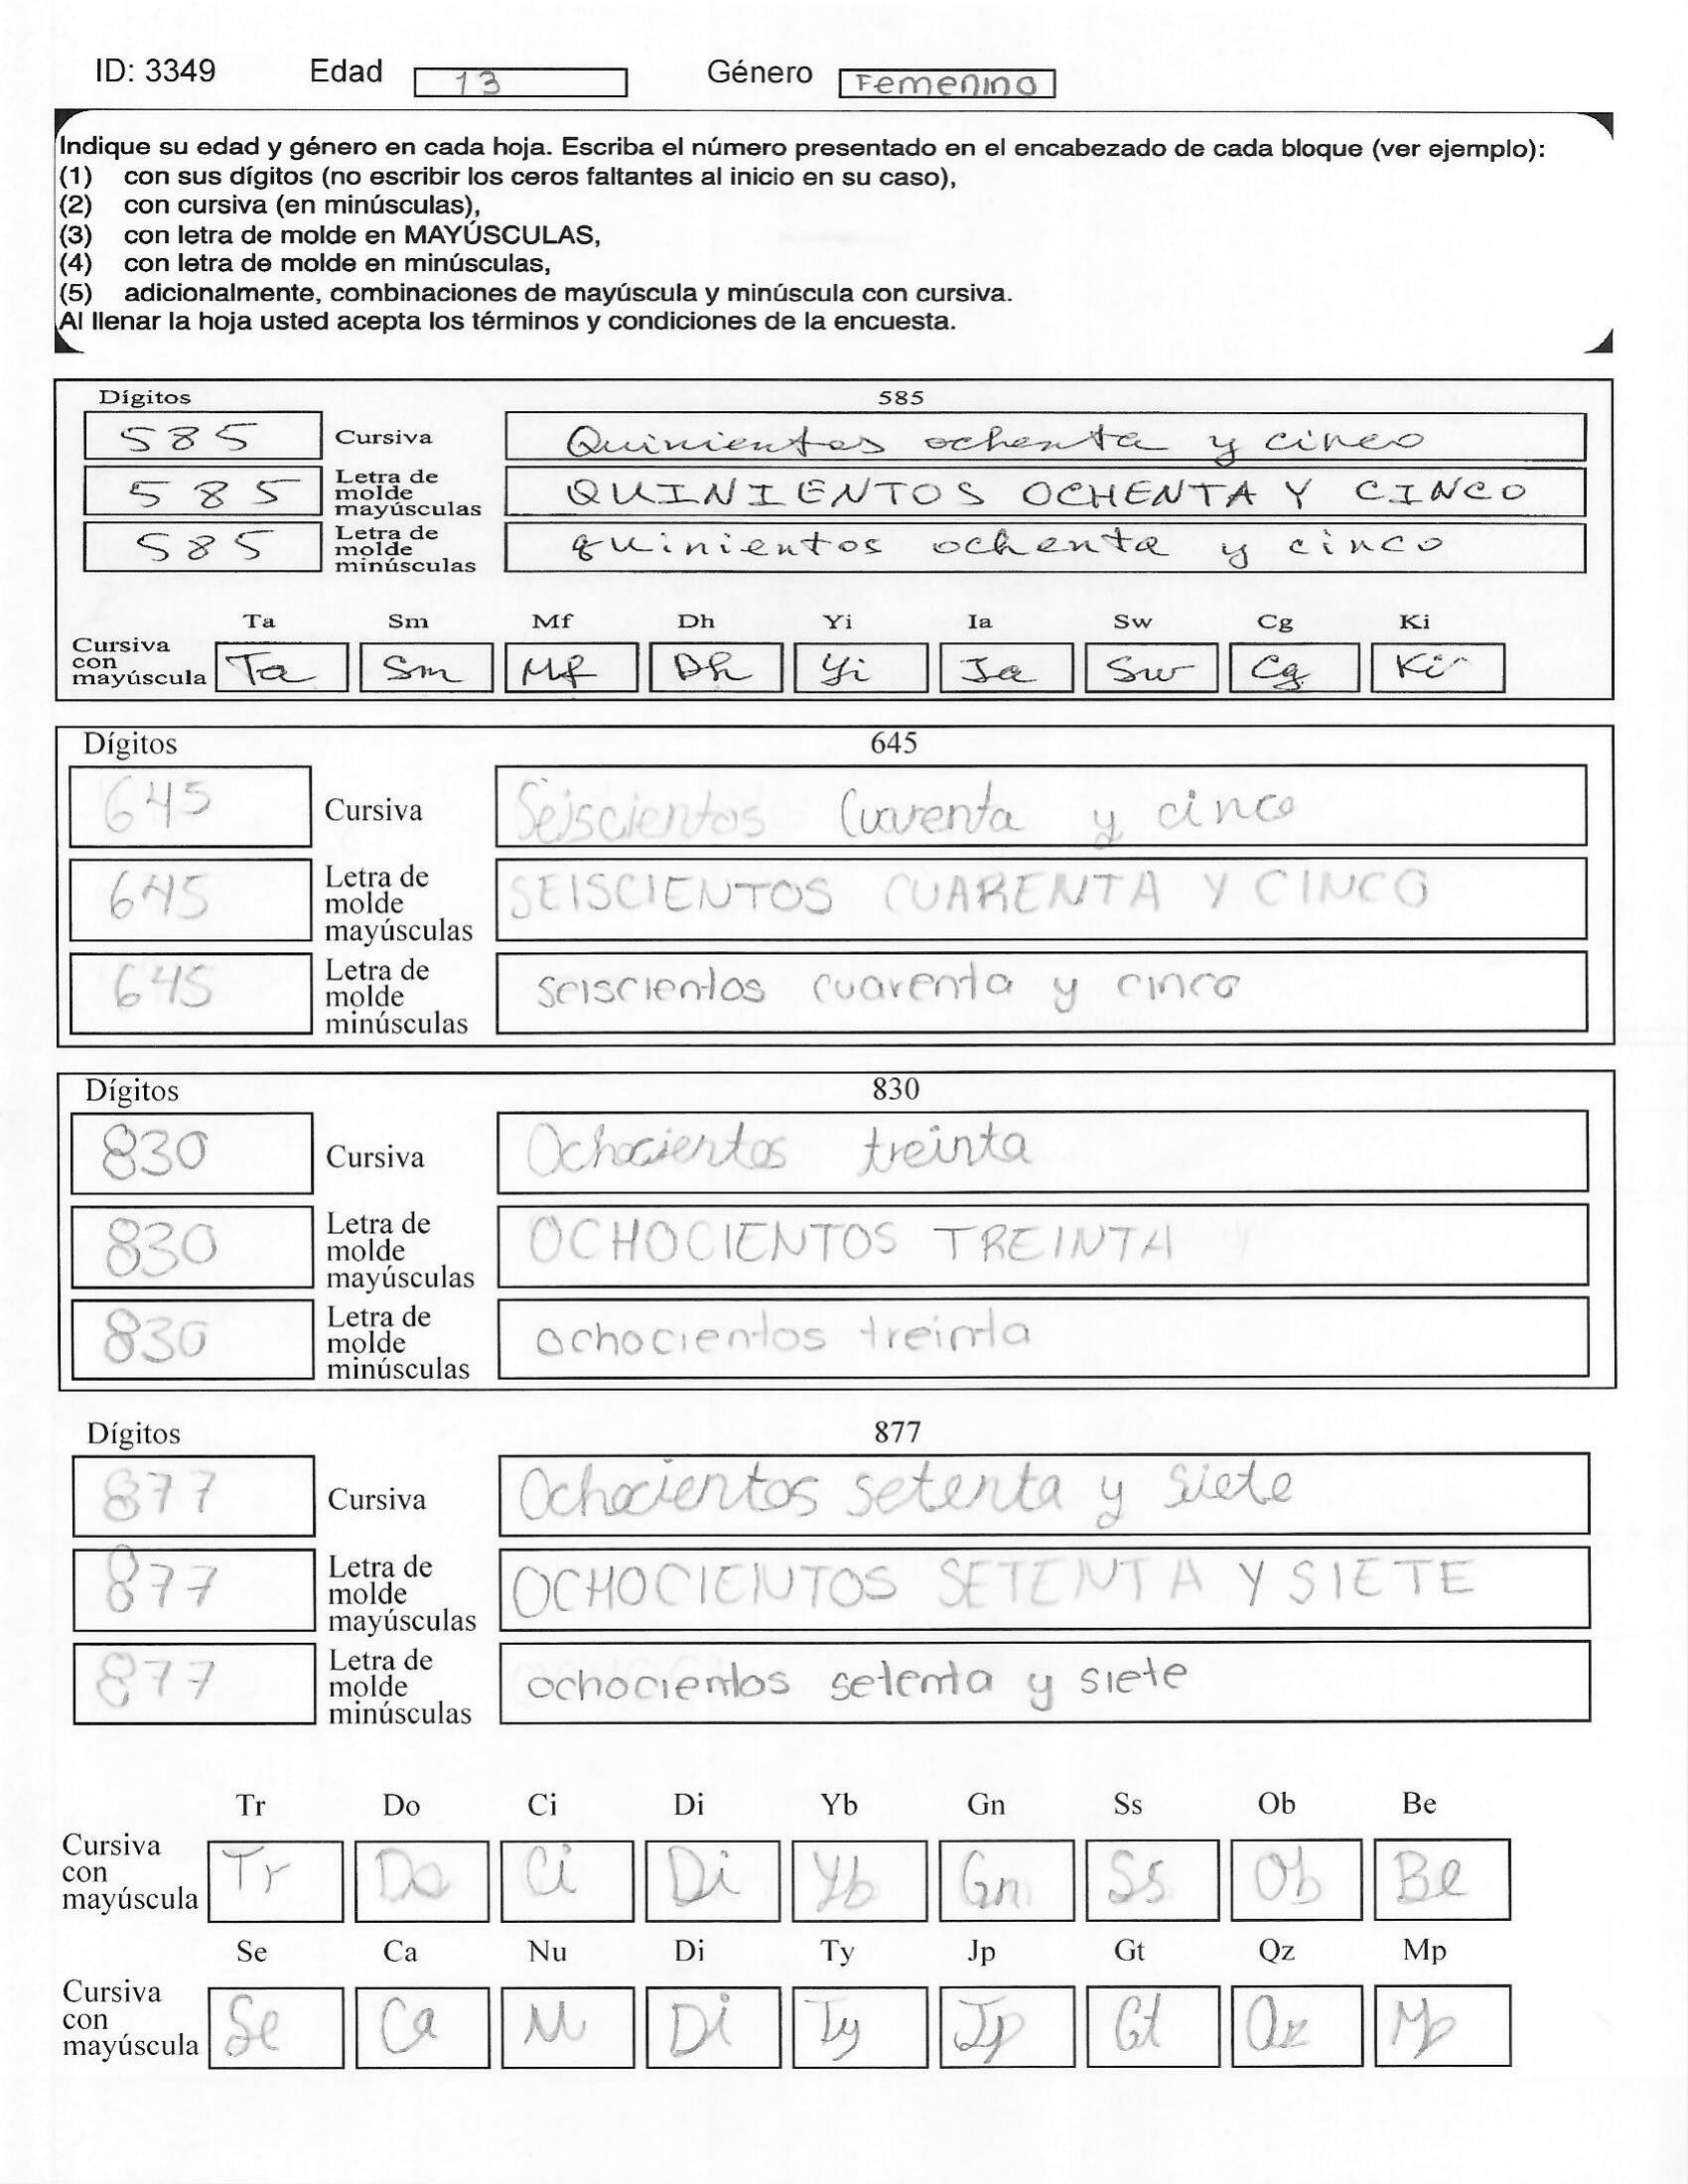 ID: 3349 Edad 13 Género Femenino
Indique su edad y género en cada hoja. Escriba el número presentado en el encabezado de cada bloque (ver ejemplo):
(1) con sus dígitos (no escribir los ceros faltantes al inicio en su caso),
(2) con cursiva (en minúsculas),
(3) con letra de molde en MAYÚSCULAS,
(4) con letra de molde en minúsculas,
(5) adicionalmente, combinaciones de mayúscula y minúscula con cursiva.
Al llenar la hoja usted acepta los términos y condiciones de la encuesta.
Dígitos 585
585 Cursiva Quinientos ochenta y cinco
585 Letra de molde mayúsculas QUINIENTOS OCHENTA Y CINCO
585 Letra de molde minúsculas quinientos ochenta y cinco
Ta Sm Mf Dh Yi Ia Sw Cg Ki
Cursiva con mayúscula Ta Sm Mf Dh Yi Ia Sw Cg Ki
Dígitos 645
645 Cursiva Seiscientos Cuarenta y cinco
645 Letra de molde mayúsculas SEISCIENTOS CUARENTA Y CINCO
645 Letra de molde minúsculas seiscientos cuarenta y cinco
Dígitos 830
830 Cursiva Ochocientos treinta
830 Letra de molde mayúsculas OCHOCIENTOS TREINTA
830 Letra de molde minúsculas ochocientos treinta
Dígitos 877
877 Cursiva Ochocientos setenta y siete
877 Letra de molde mayúsculas OCHOCIENTOS SETENTA Y SIETE
877 Letra de molde minúsculas ochocientos setenta y siete
Tr Do Ci Di Yb Gn Ss Ob Be
Cursiva con mayúscula Tr Do Ci Di Yb Gn Ss Ob Be
Se Ca Nu Di Ty Jp Gt Qz Mp
Cursiva con mayúscula Se Ca Nu Di Ty Jp Gt Qz Mp